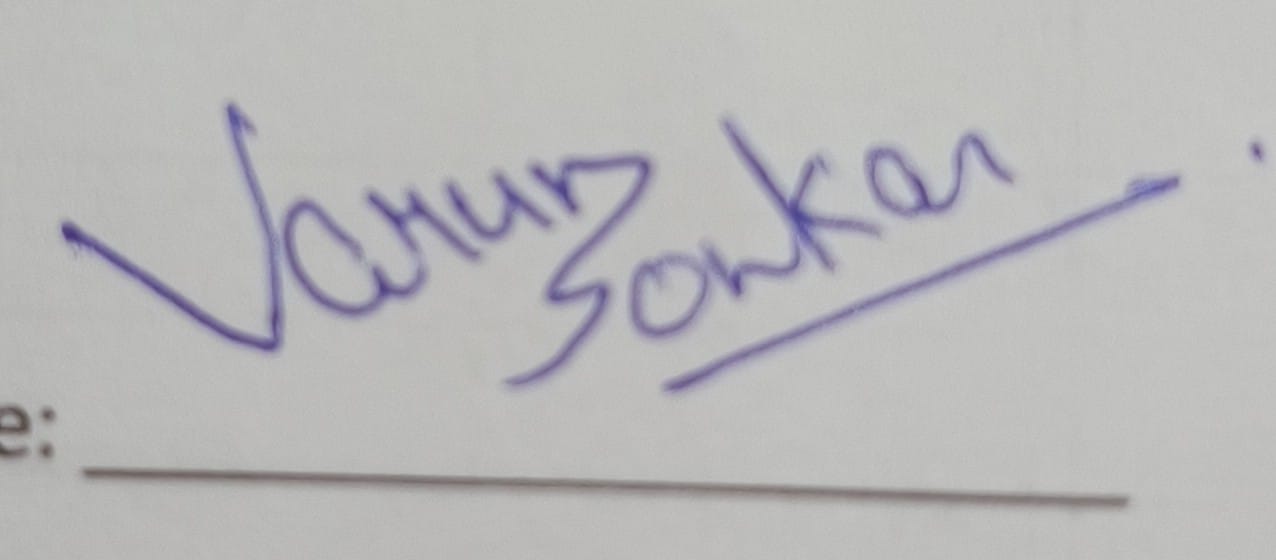 Varun Sonkar
e: